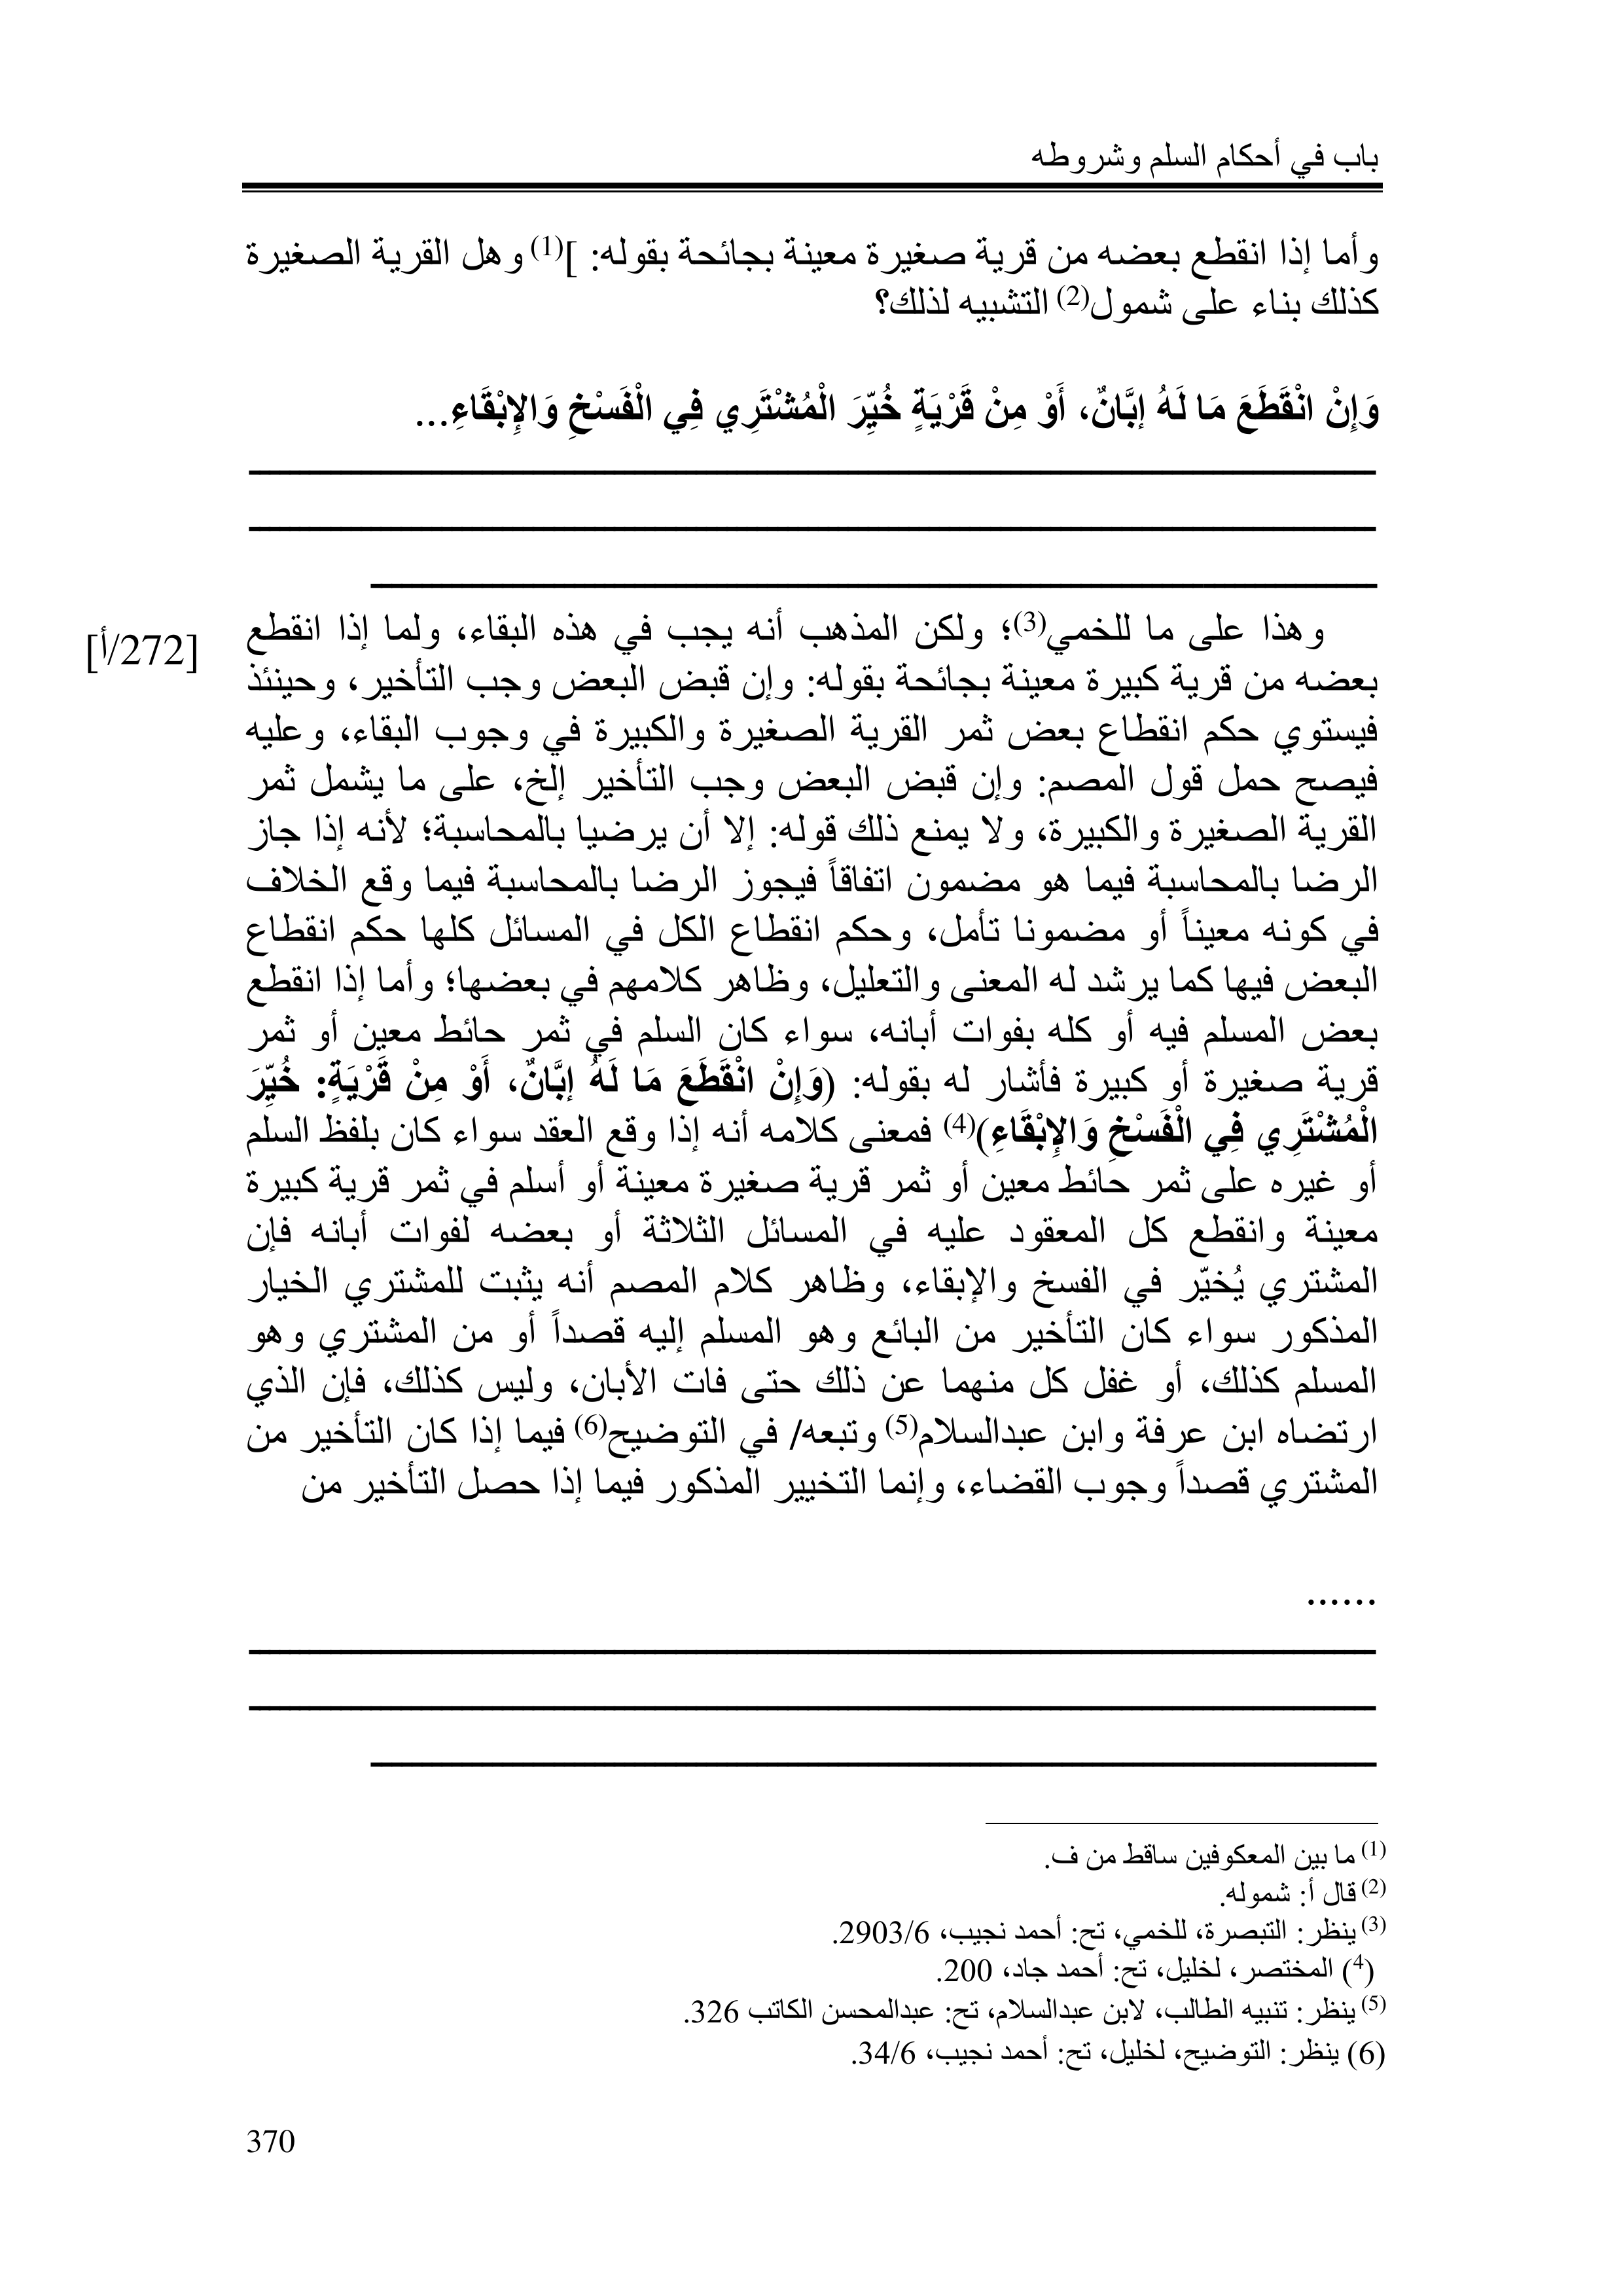 باب في أحكام السلم وشروطه
وأما إذا انقطع بعضه من قرية صغيرة معينة بجائحة بقوله: ](1) وهل القرية الصغيرة
كذلك بناء على شمول(2) التشبيه لذلك؟
وَإِنْ انْقَطَعَ مَا لَهُ إبَّانٌ، أَوْ مِنْ قَرْيَةٍ خُيِّرَ الْمُشْتَرِي فِي الْفَسْخِ وَالإِبْقَاءِ...
وهذا على ما للخمي(3)؛ ولكن المذهب أنه يجب في هذه البقاء، ولما إذا انقطع
[272/أ]
بعضه من قرية كبيرة معينة بجائحة بقوله: وإن قبض البعض وجب التأخير، وحينئذ
فيستوي حكم انقطاع بعض ثمر القرية الصغيرة والكبيرة في وجوب البقاء، وعليه
فيصح حمل قول المصم: وإن قبض البعض وجب التأخير إلخ، على ما يشمل ثمر
القرية الصغيرة والكبيرة، ولا يمنع ذلك قوله: إلا أن يرضيا بالمحاسبة؛ لأنه إذا جاز
الرضا بالمحاسبة فيما هو مضمون اتفاقاً فيجوز الرضا بالمحاسبة فيما وقع الخلاف
في كونه معيناً أو مضمونا تأمل، وحكم انقطاع الكل في المسائل كلها حكم انقطاع
البعض فيها كما يرشد له المعنى والتعليل، وظاهر كلامهم في بعضها؛ وأما إذا انقطع
بعض المسلم فيه أو كله بفوات أبانه، سواء كان السلم في ثمر حائط معين أو ثمر
قرية صغيرة أو كبيرة فأشار له بقوله: (وَإِنْ انْقَطَعَ مَا لَهُ إبَّانٌ، أَوْ مِنْ قَرْيَةٍ: خُيِّرَ
الْمُشْتَرِي فِي الْفَسْخِ وَالإِبْقَاءِ)(4) فمعنى كلامه أنه إذا وقع العقد سواء كان بلفظ السلم
أو غيره على ثمر حائط معين أو ثمر قرية صغيرة معينة أو أسلم في ثمر قرية كبيرة
معينة وانقطع كل المعقود عليه في المسائل الثلاثة أو بعضه لفوات أبانه فإن
المشتري يُخيّر في الفسخ والإبقاء، وظاهر كلام المصم أنه يثبت للمشتري الخيار
المذكور سواء كان التأخير من البائع وهو المسلم إليه قصداً أو من المشتري وهو
المسلم كذلك، أو غفل كل منهما عن ذلك حتى فات الأبان، وليس كذلك، فإن الذي
ارتضاه ابن عرفة وابن عبدالسلام(5) وتبعه/ في التوضيح(6) فيما إذا كان التأخير من
المشتري قصداً وجوب القضاء، وإنما التخيير المذكور فيما إذا حصل التأخير من
......
(1) ما بين المعكوفين ساقط من ف.
(2) قال أ: شموله.
(3) ينظر: التبصرة، للخمي، تح: أحمد نجيب، 2903/6.
(4) المختصر، لخليل، تح: أحمد جاد، 200.
(5) ينظر: تنبيه الطالب، لابن عبدالسلام، تح: عبدالمحسن الكاتب 326.
(6) ينظر: التوضيح، لخليل، تح: أحمد نجيب، 34/6.
370